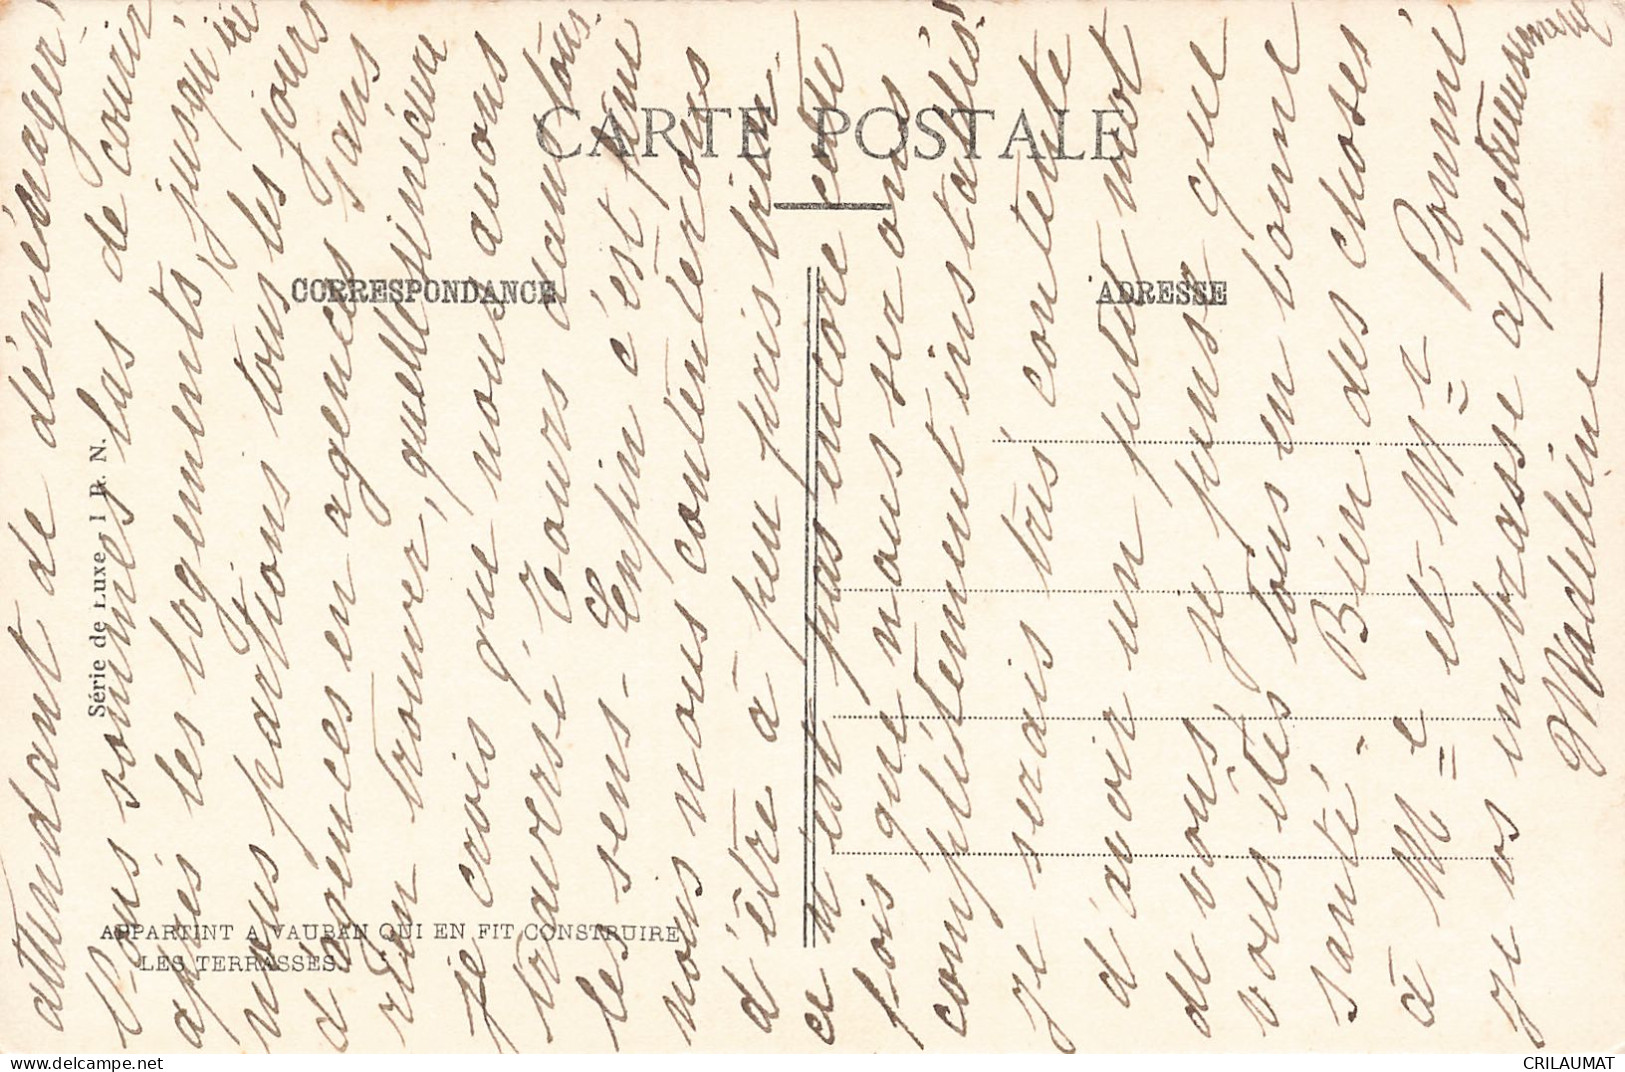 CARTE POSTALE
CORRESPONDANCE
ADRESSE
Série de Luxe I R. N.
APPARTINT A VAUBAN QUI EN FIT CONSTRUIRE
LES TERRASSES.
attendant de déménager.
Ns sommes las de courir
après les logements, jusqu'ici
nous partions tous les jours
d'agences en agences sans
rien trouver, quelle sinécure
je crois que nous avons
traversé Tours dans tous
les sens. Enfin c'est fini
nous nous contenterons
d'être à peu près bien
ce n'est pas encore cette
fois que nous serons
complètement installés.
Je serais très contente
d'avoir un petit mot
de vous, je pense que
vous êtes tous en bonne
santé. Bien des choses
à Me et Mr Pommé
Je vs embrasse affectueusement
Madeleine
CRILAUMAT